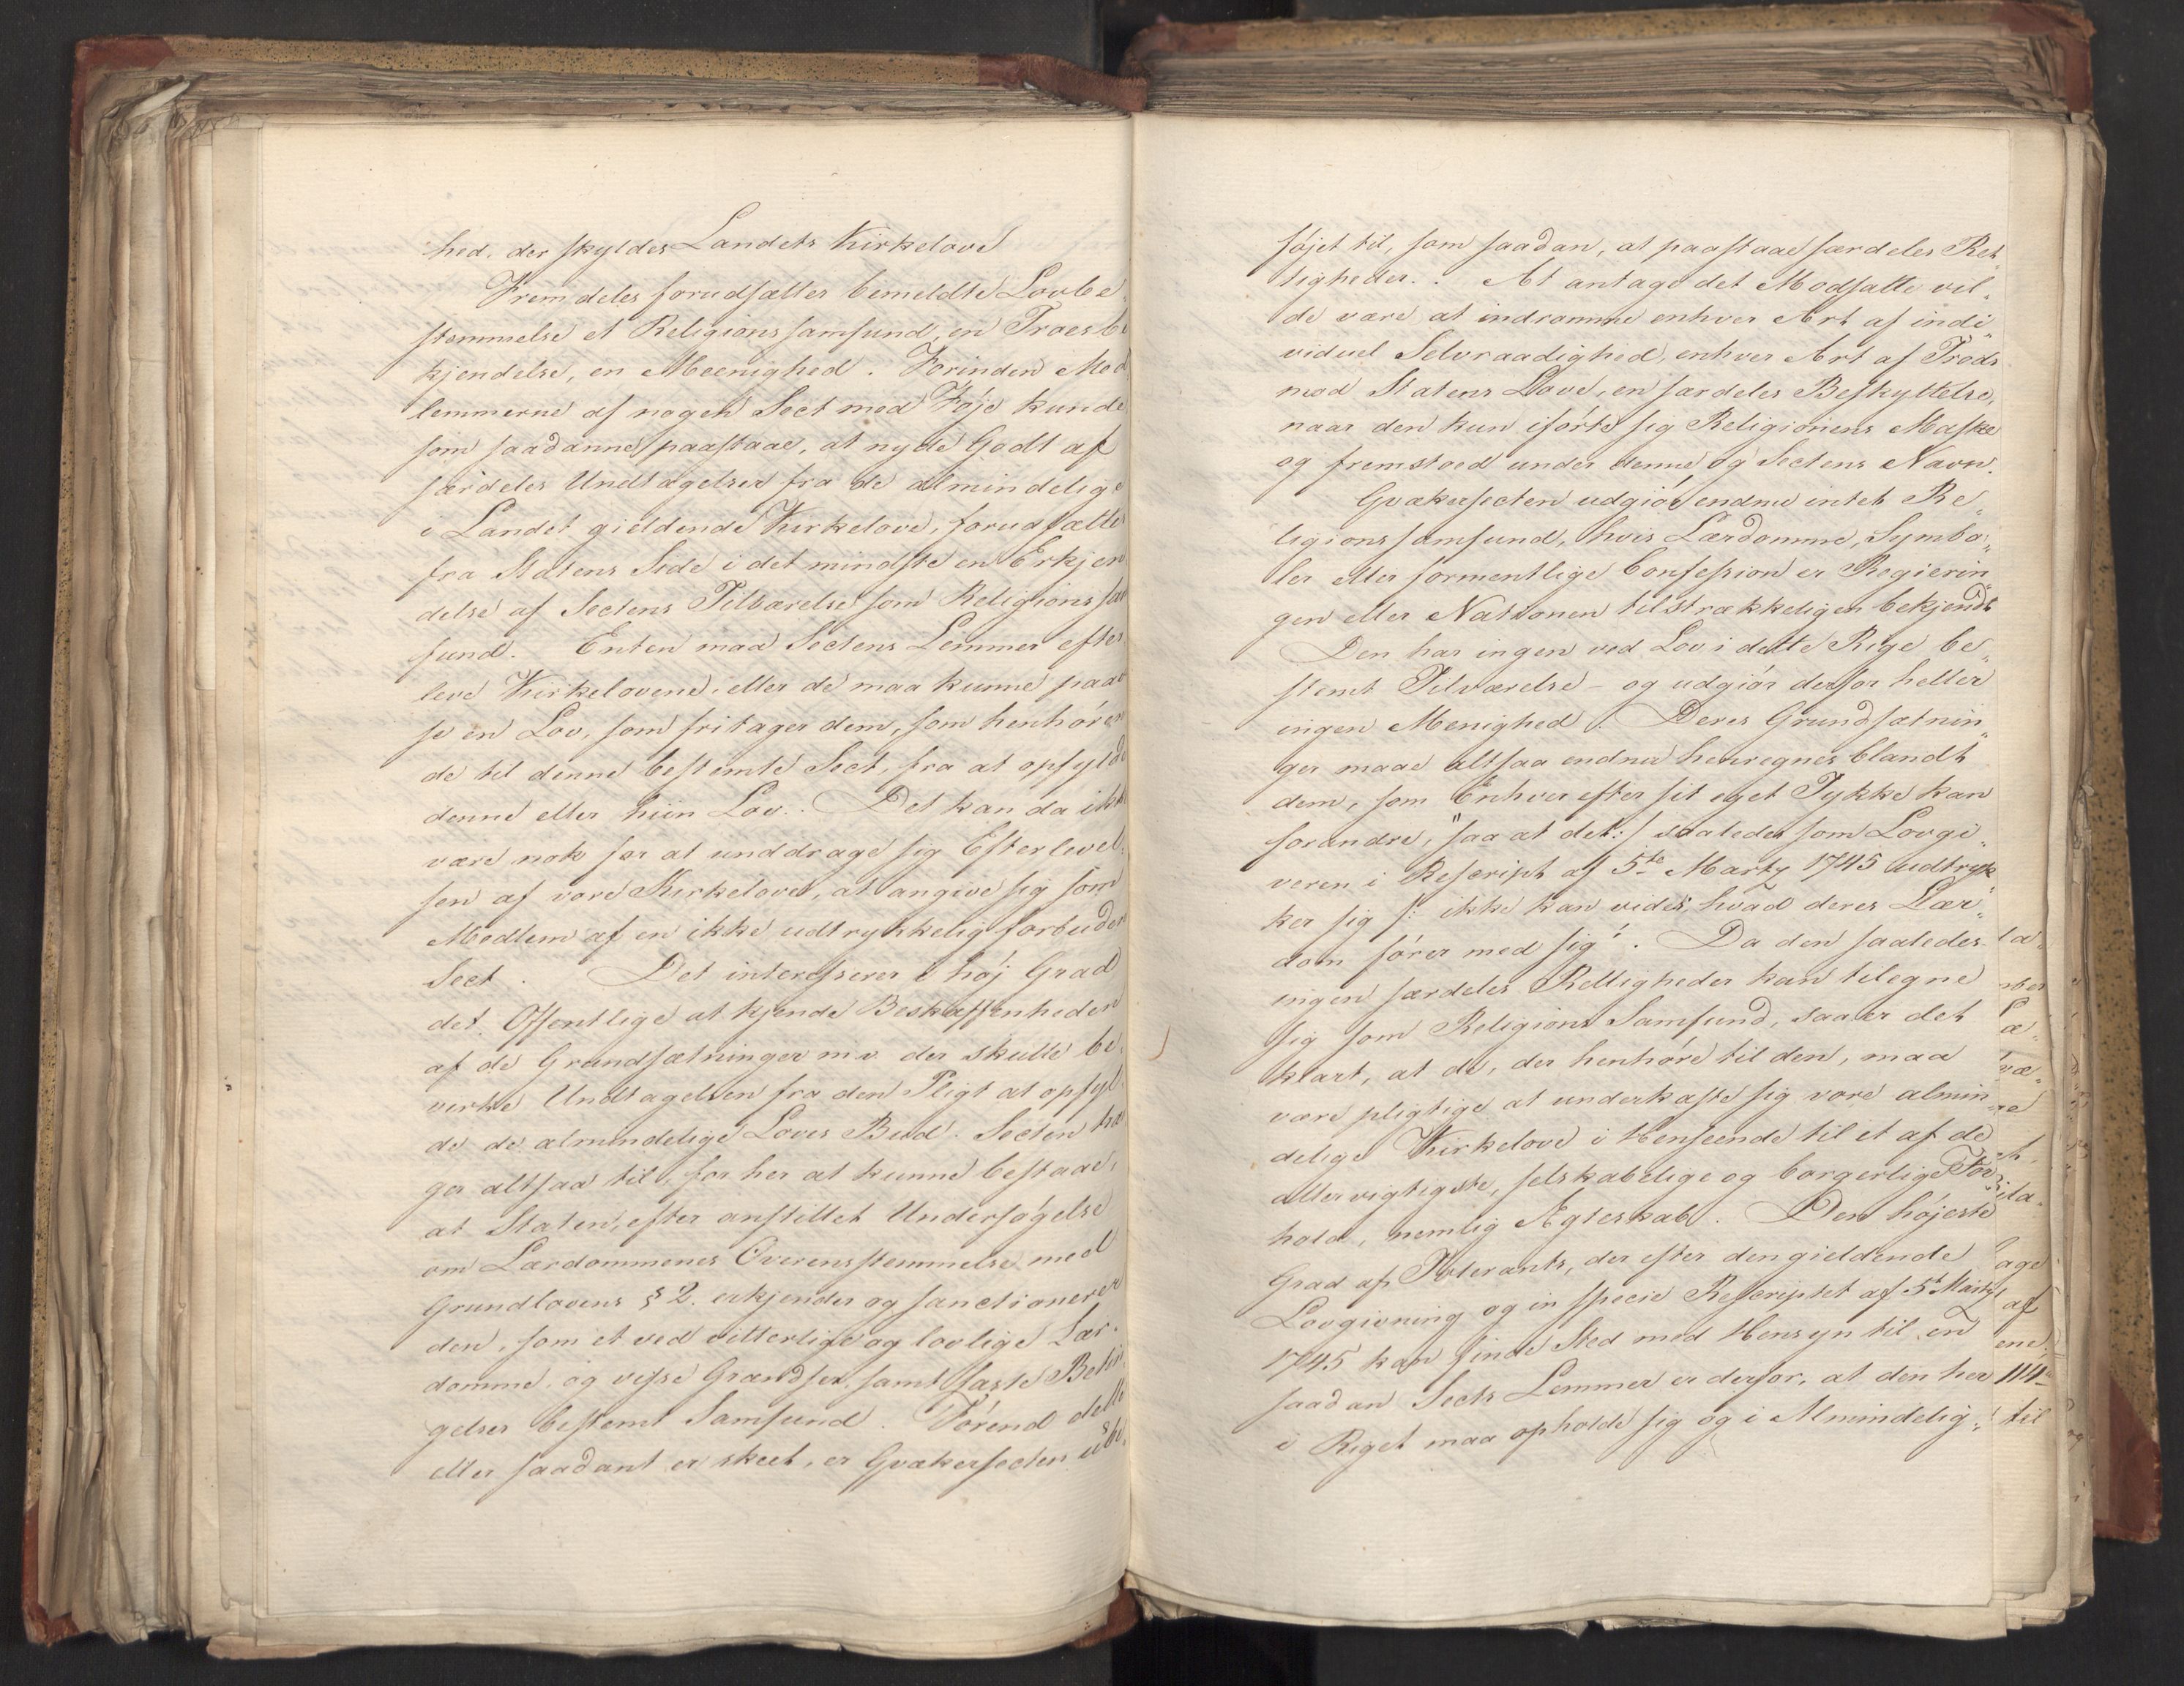 hed, der skyldes Landets Kirkelove
Fremdeles forudsætter bemeldte Lovbe„
stemmelse et Religionssamfund, en Troesbe
kjendelse, en Meenighed. Forinden Med
lemmerne af nogen Sect med Föje kunde
som saadanne paastaae, at nyde Godt af
særdeles Undtagelser fra de almindelige
i Landet gieldende Kirkelove, forudsættes
fra Statens Side i det mindste en Erkjen
delse af Sectens Tilværelse som Religionssam
fund. Enten maa Sectens Lemmer efter
leve Kirkelovene, eller de maa kunne paavi
se en Lov, som fritager dem, som henhören
de til denne bestemte Sect, fra at opfylde
denne eller hiin Lov. Det kan da ikke
være nok for at unddrage sig Efterlevel„
sen af vore Kirkelove, at angive sig som
Medlem af en ikke udtrykkelig forbuden
Sect. Det interesserer i höj Grad
det Offentlige at kjende Beskaffenheden
af de Grundsætninger m.v. der skulle be„
virke Undtagelsen fra den Pligt at opfyl„
de de almindelige Loves Bud. Secten træn
ger altsaa til, for her at kunne bestaae,
at Staten, efter anstillet Undersögelse
om Lærdommenes Overensstemmelse med
Grundlovens § 2. erkjender og sanctionerer
den, som et ved vitterlige og lovlige Lær„
domme, og visse Grændser, samt faste Betin„
gelser bestemt Samfund. Förend dette
eller saadant er skeet, er Gvækersecten ube„
föjet til, som saadan, at paastaae særdeles Ret„
tigheder. At antage det Modsatte vil„
de være at indrømme enhver Art af indi„
viduel Selvraadighed, enhver Art af Trods
mod Statens Love, en særdeles Beskyttelse,
naar den kun iførte sig Religionens Maske
og fremstoed under denne og Sectens Navn.
Gvækersecten udgiör endnu intet Re„
ligionssamfund, hvis Lærdomme, Symbo„
ler eller formentlige Confession er Regierin
gen eller Nationen tilstrækkeligen bekjendt
Den har ingen ved Lov i dette Rige be„
stemt Tilværelse – og udgiör derfor heller
ingen Menighed. Deres Grundsætnin„
ger maae altsaa endnu henregnes blandt
dem, som Enhver efter sit eget Tykke kan
forandre, "saa at det :/ saaledes som Lovgi„
veren i Rescript af 5te Martz 1745 udtryk„
ker sig /: ikke kan vides, hvad deres Lær„
dom förer med sig". Da den saaledes
ingen særdeles Rettigheder kan tilegne
sig som Religions Samfund, saa er det
klart, at de, der henhöre til den, maa
være pligtige at underkaste sig vore almin
delige Kirkelove i Henseende til et af de
allervigtigste, selskabelige og borgerlige For„
hold, nemlig Ægteskab. Den höjeste
Grad af Tolerants, der efter den gieldende
Lovgivning og in specie Rescriptet af 5t Martz
1745 kan finde Sted med Hensyn til en
saadan Sects Lemmer er derfor, at den her
i Riget maa opholde sig og i Almindelig„